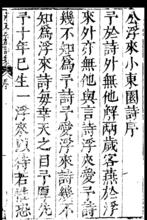 公浮來小東園詩序
予於詩外無他解兩歲客燕於浮
來外亦無他與言詩浮來愛予詩
幾不知為予詩予愛浮來詩幾不
知為浮來詩每幸天之目予厚先
予十年已生一浮來以待若